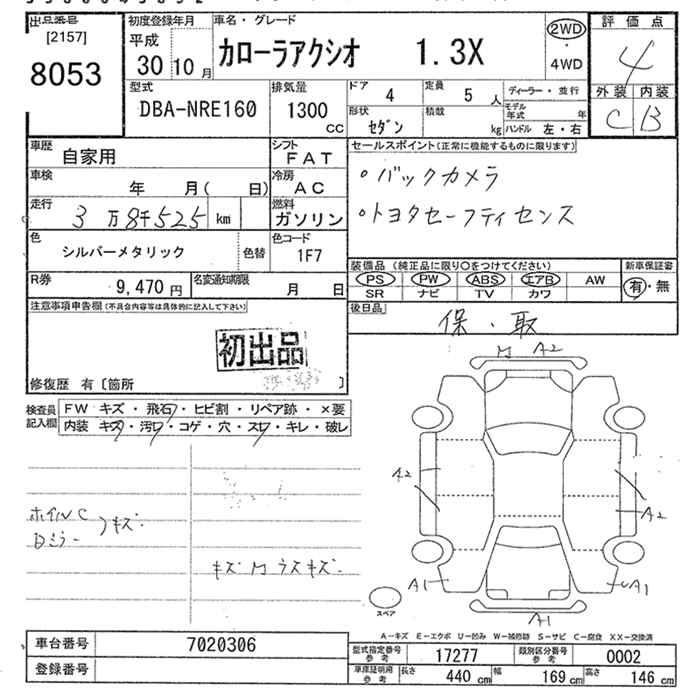 出品番号
[2157]
8053
初度登録年月
平成
30 10 月
車名・グレード
カローラアクシオ 1.3X
2WD
・
4WD
評価点
4
外装 内装
C B
型式
DBA-NRE160
排気量
1300
CC
ドア
4
定員
5 人
形状
セダン
積載
kg
ディーラー・並行
モデル年式 年
ハンドル 左・右
車歴
自家用
シフト
FAT
車検
年 月( 日)
冷房
AC
走行
3 万 8千525 km
燃料
ガソリン
色
シルバーメタリック
色替
色コード
1F7
R券
9,470 円
名変通知期限
月 日
セールスポイント(正常に機能するものに限ります)
○バックカメラ
○トヨタセーフティセンス
装備品 (純正品に限り○をつけてください)
PS PW ABS エアB AW
SR ナビ TV カワ
新車保証書
有・無
後日品
保・取
注意事項申告欄(不具合内容等は具体的に記入して下さい)
初出品
修復歴 有 〔箇所 〕
検査員記入欄
FW キズ・飛石・ヒビ割・リペア跡・×要
内装 キズ・汚レ・コゲ・穴・スレ・キレ・破レ
ホイルC
Dミラー
キズ
キズ M ウスキズ
M A2
A2
A2
A1
A1
A1
スペア
A-キズ E-エクボ U-凹み W-補修跡 S-サビ C-腐食 XX-交換済
車台番号
7020306
登録番号
型式指定番号 参考
17277
類別区分番号 参考
0002
車庫証明用 参考
長さ 440 cm 幅 169 cm 高さ 146 cm